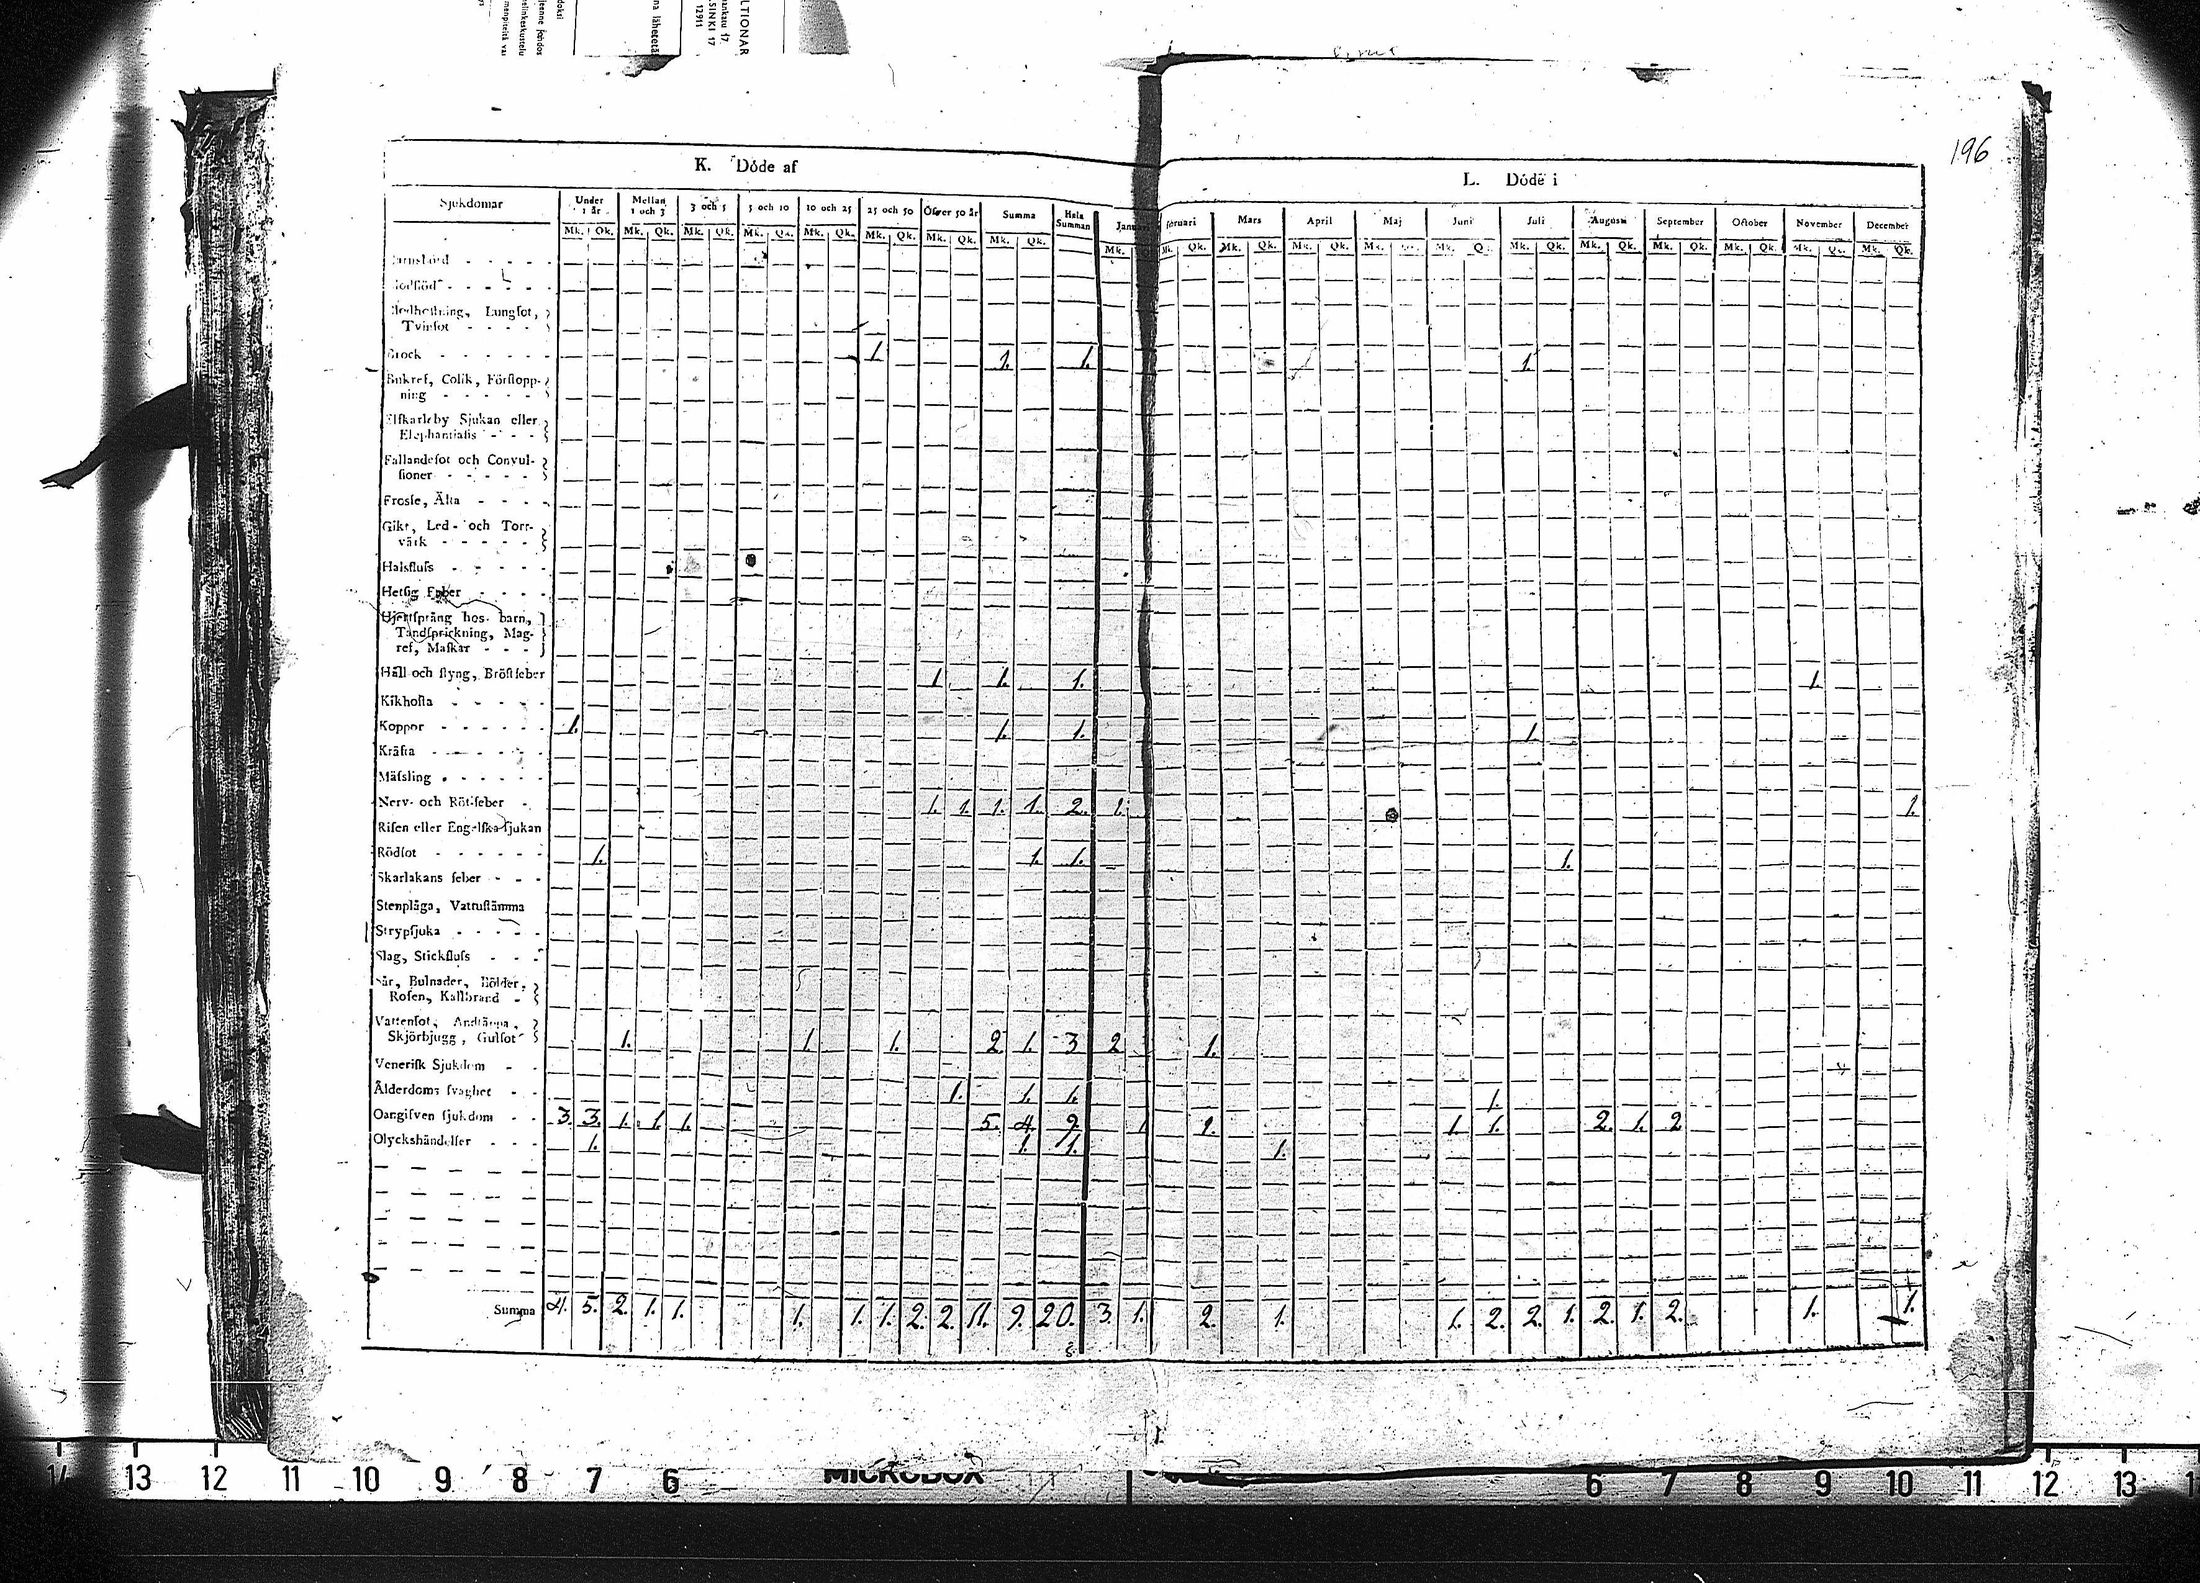 LTIONAR
ankatu 17
SINKI 17
12911
na lähetetä
196
K. Döde af
L. Döde i
Sjukdomar Under 1 år Mellan 1 och 3 3 och 5 5 och 10 10 och 25 25 och 50 Öfver 50 år Summa Hela Summan Januari Februari Mars April Maj Juni Juli Augusti September October November December
Mk. Qk. Mk. Qk. Mk. Qk. Mk. Qk. Mk. Qk. Mk. Qk. Mk. Qk. Mk. Qk. Mk. Mk. Qk. Mk. Qk. Mk. Qk. Mk. Mk. Qk. Mk. Qk. Mk. Qk. Mk. Qk. Mk. Qk. Mk. Qk. Mk. Qk.
Barnsbörd - - - -
Blodhostning, Lungsot,
Tvinsot - - - -
Brock - - - - - - 1 1. 1. 1.
Bukref, Colik, Förstopp-
ning - - - - -
Elfkarleby Sjukan eller
Elephantiasis - - - -
Fallandesot och Convul-
sioner - - - - -
Frosse, Älta - - - -
Gikt, Led- och Torr-
värk - - - - -
Halsfluss - - - - -
Hetsig Feber - - - -
Hjertsprång hos barn,
Tandsprickning, Mag-
ref, Maskar - - -
Håll och styng, Bröstfeber 1 1. 1. 1.
Kikhosta - - - - -
Koppor - - - - - - 1. 1. 1. 1.
Kräfta - - - - - -
Mässling - - - - -
Nerv- och Rötfeber - 1. 1. 1. 1. 2. 1. 1.
Risen eller Engelska sjukan
Rödsot - - - - - - 1. 1. 1. 1.
Skarlakans feber - - -
Stenplåga, Vattustämma
Strypsjuka - - - - -
Slag, Stickfluss - - -
Sår, Bulnader, Bölder,
Rosen, Kallbrand -
Vattensot, Andtäppa,
Skörbjugg, Gulsot 1. 1. 1. 2. 1. 3 2 1.
Venerisk Sjukdom - -
Ålderdoms svaghet - - 1. 1. 1. 1.
Oangifven sjukdom - - 3. 3. 1. 1. 1. 5. 4. 9. 1 1. 1. 1. 2. 1. 2
Olyckshändelser - - - 1. 1. 1. 1.
Summa 4. 5. 2. 1. 1. 1. 1. 1. 2. 2. 11. 9. 20. 3. 1. 2. 1. 1. 2. 2. 1. 2. 1. 2. 1. 1.
14 13 12 11 10 9 8 7 6 MICROBOX 6 7 8 9 10 11 12 13